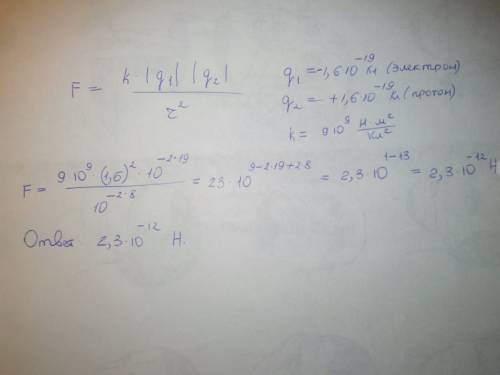 F = k·|q₁| |q₂| / r²
q₁ = -1,6·10⁻¹⁹ Кл (электрон)
q₂ = +1,6·10⁻¹⁹ Кл (протон)
k = 9·10⁹ Н·м²/Кл²
F = 9·10⁹·(1,6)²·10⁻²·¹⁹ / 10⁻²·⁸ = 23·10⁹⁻²·¹⁹⁺²·⁸ = 2,3·10¹⁻¹³ = 2,3·10⁻¹² Н
Ответ 2,3·10⁻¹² Н.